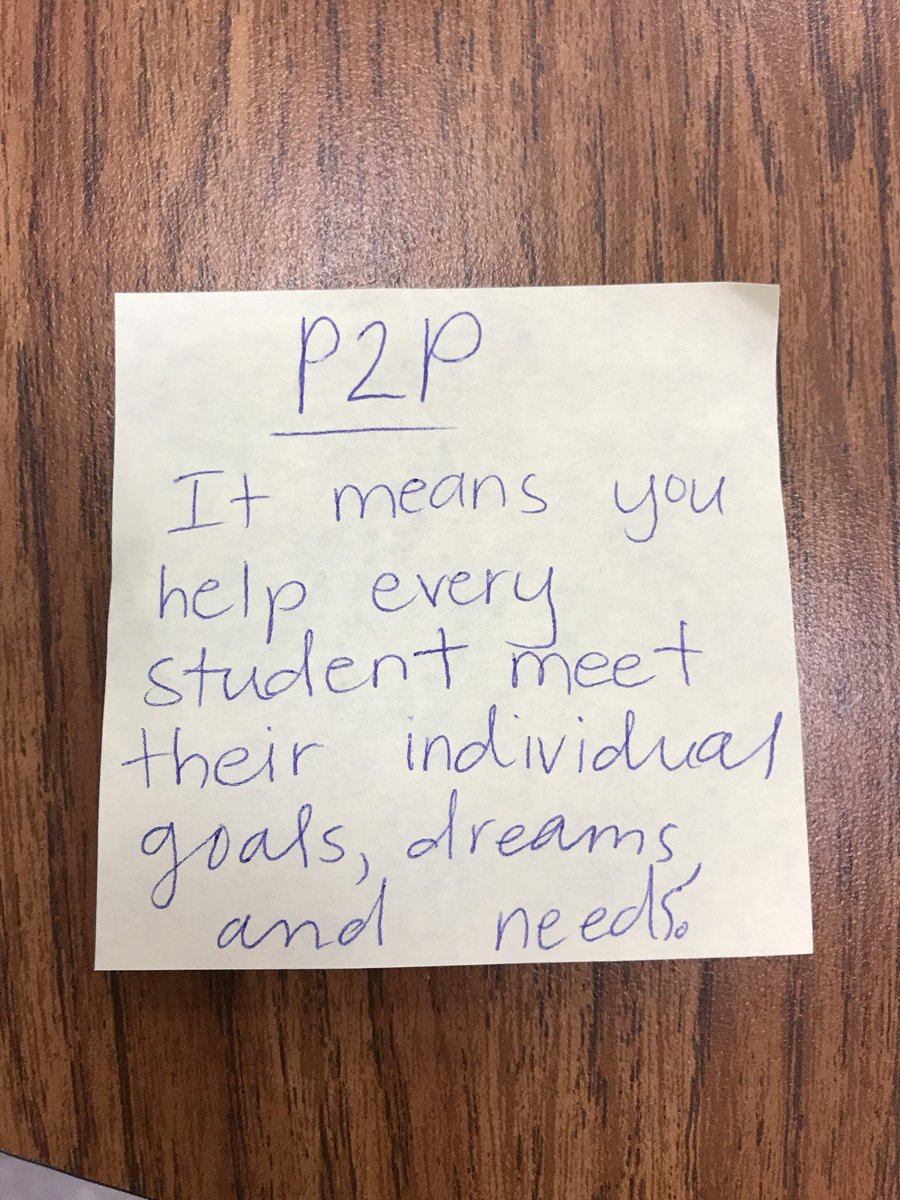 P2P
It means you
help every
student meet
their individual
goals, dreams,
and needs.